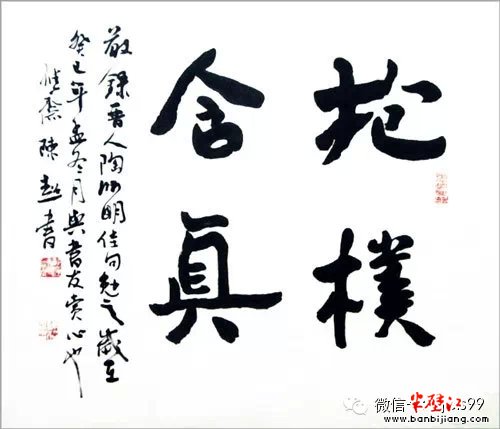 抱樸
含真
敬錄晉人陶淵明佳句勉之歲在
癸巳年孟冬月與書友賞心也
齋陳超書
微信
半壁江
www.banbijiang.com